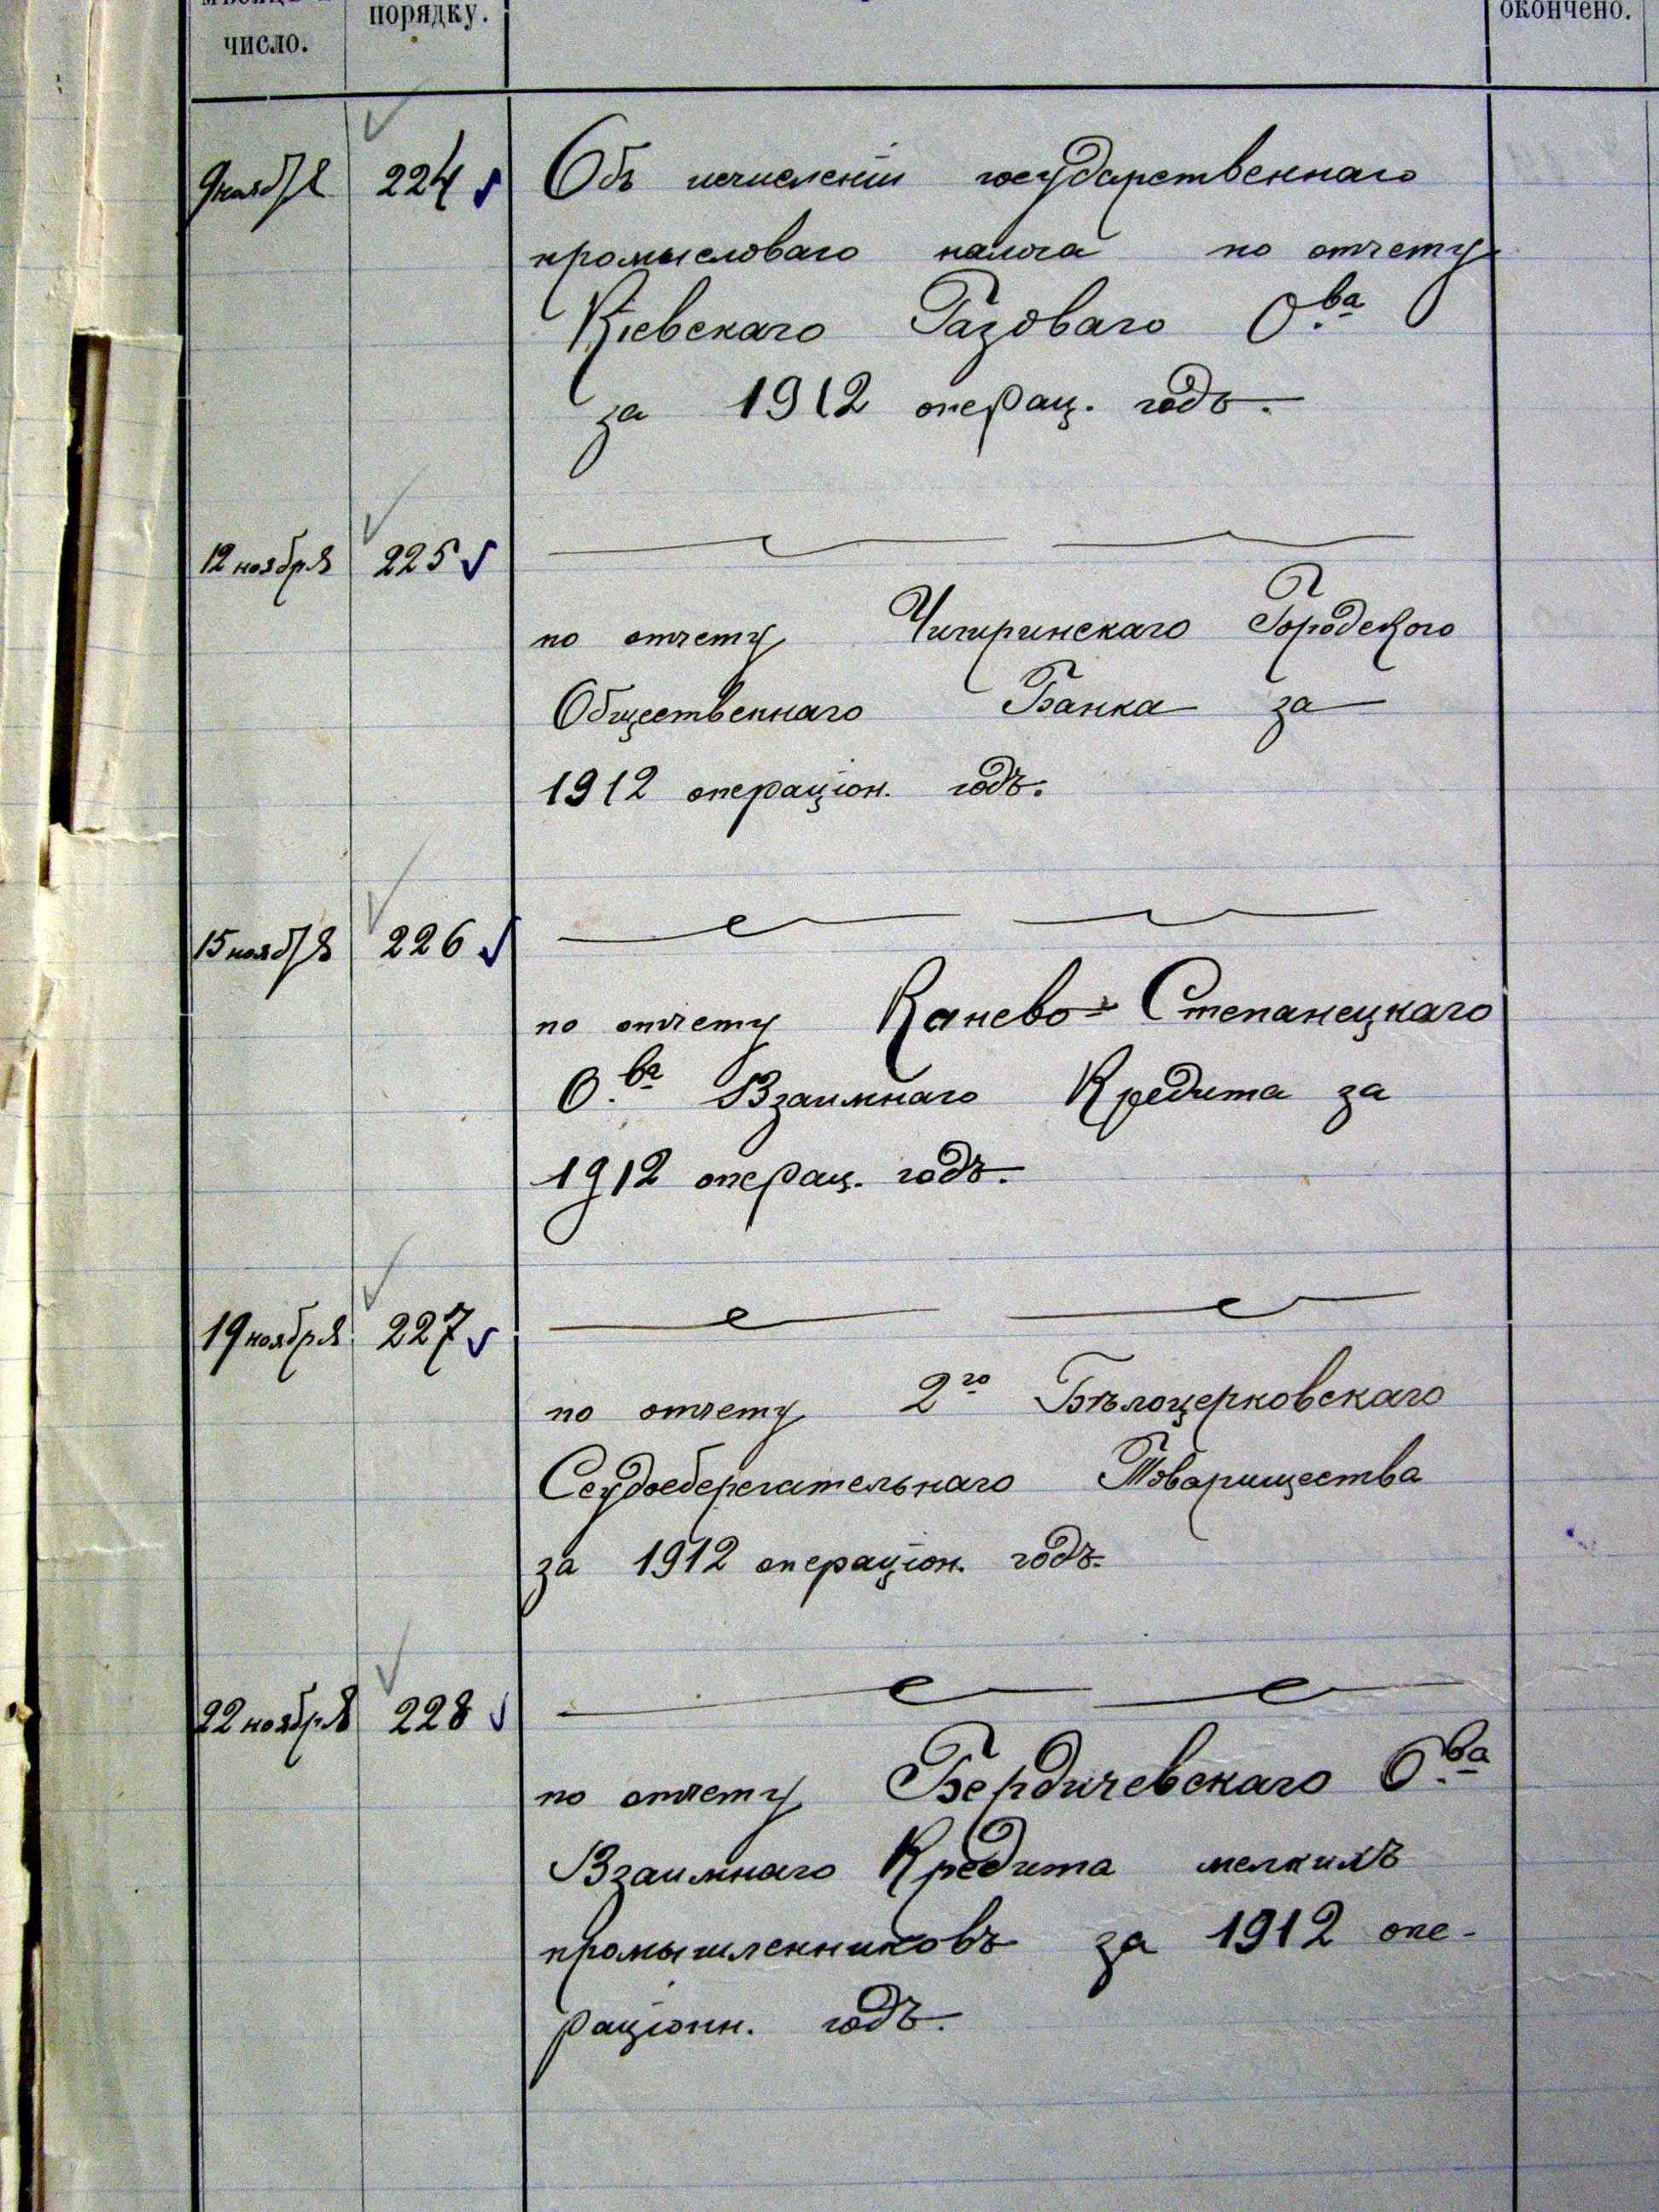 число.
порядку.
окончено.
9 ноября 224 Объ исчисленіи государственнаго
промысловаго налога по отчету
Кіевскаго Газоваго О.ва
за 1912 операц. годъ.
12 ноября 225
по отчету Чигиринскаго Городского
Общественнаго Банка за
1912 операціон. годъ.
15 ноября 226
по отчету Канево-Степанецкаго
О.ва Взаимнаго Кредита за
1912 операц. годъ.
19 ноября 227
по отчету 2го Бѣлоцерковскаго
Ссудосберегательнаго Товарищества
за 1912 операціон. годъ.
22 ноября 228
по отчету Бердичевскаго О.ва
Взаимнаго Кредита мелкихъ
промышленниковъ за 1912 опе-
раціонн. годъ.